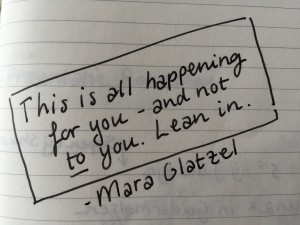 This is all happening
for you - and not
to you. Lean in.
- Mara Glatzel